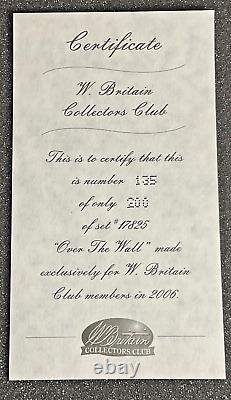 Certificate
W. Britain
Collectors Club
This is to certify that this
is number 135
of only 200
of set #17825
"Over The Wall" made
exclusively for W. Britain
Club members in 2006.
W. Britain
COLLECTORS CLUB
ebay